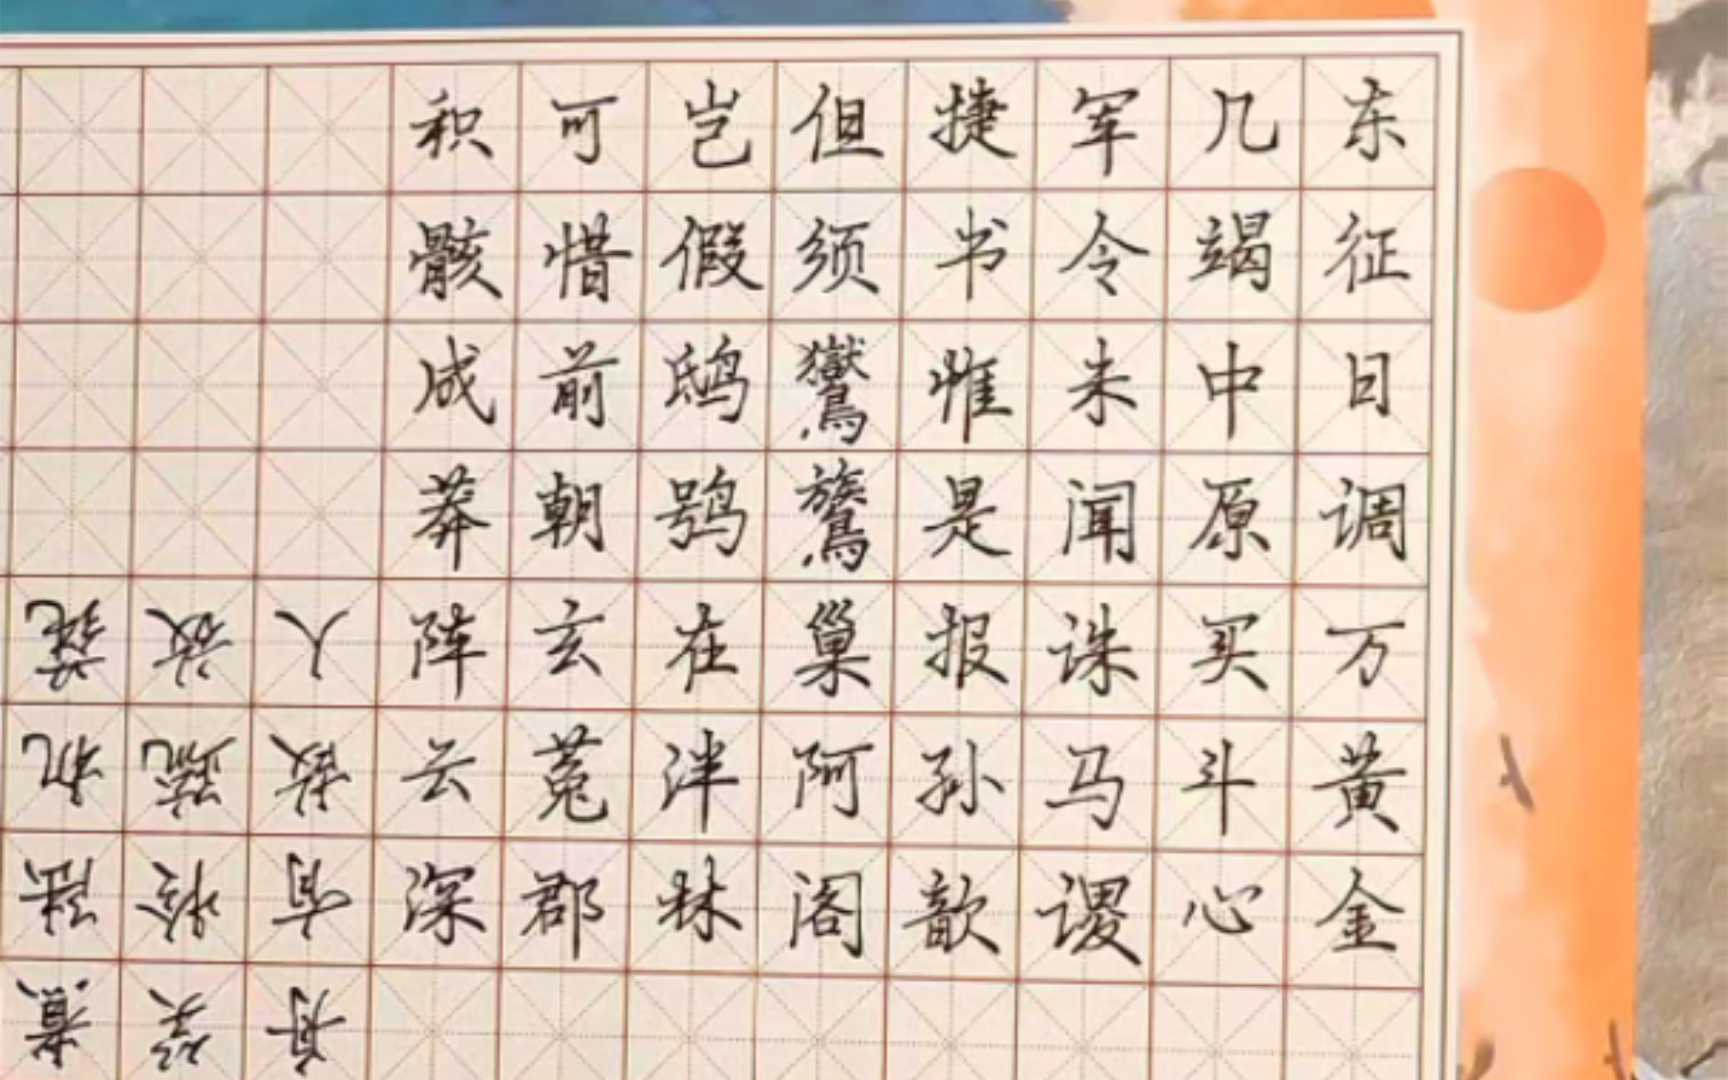 东征日调万黄金
几竭中原买斗心
军令未闻诛马谡
捷书惟是报孙歆
但须鸑鷟巢阿阁
岂假鸱鸮在泮林
可惜前朝玄菟郡
积骸成莽阵云深